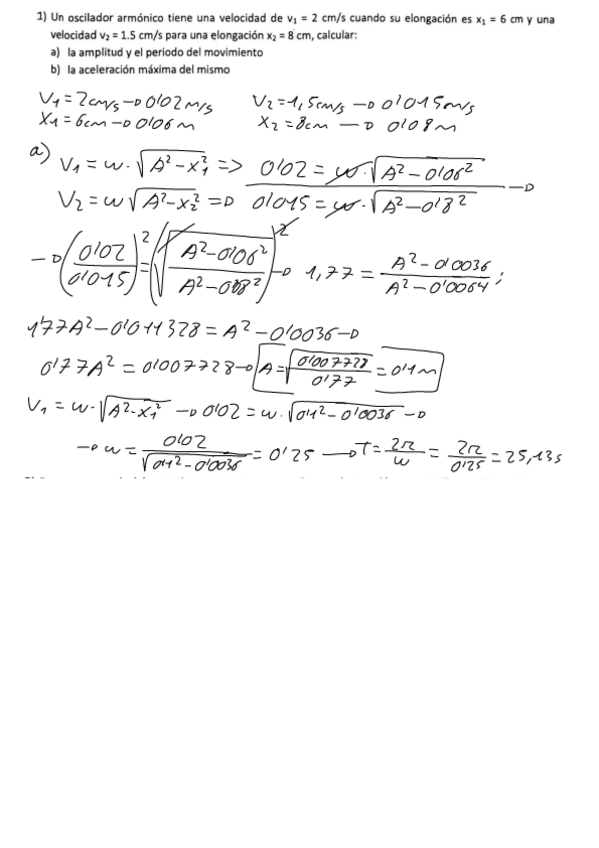 1) Un oscilador armónico tiene una velocidad de v₁ = 2 cm/s cuando su elongación es x₁ = 6 cm y una
velocidad v₂ = 1.5 cm/s para una elongación x₂ = 8 cm, calcular:
a) la amplitud y el periodo del movimiento
b) la aceleración máxima del mismo
V₁ = 2cm/s → 0'02 m/s V₂ = 1,5cm/s → 0'015m/s
X₁ = 6cm → 0'06m X₂ = 8cm → 0'08m
a) V₁ = w·√(A²-x₁²) => 0'02 = w·√(A²-0'06²)
V₂ = w√(A²-x₂²) => 0'015 = w·√(A²-0'8²) →
→ (0'02/0'015)² = (√((A²-0'06²)/(A²-0'08²)))² → 1,77 = (A²-0'0036)/(A²-0'0064);
1'77A²-0'011328 = A²-0'0036 →
0'77A² = 0'007728 → A = √(0'007728/0'77) = 0'1m
V₁ = w·√(A²-x₁²) → 0'02 = w·√(0'1²-0'0036) →
→ w = 0'02/√(0'1²-0'0036) = 0'25 → T = 2π/w = 2π/0'25 = 25,13s